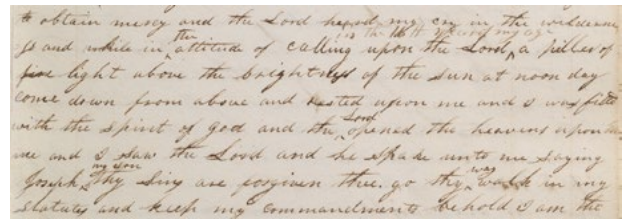 to obtain mercy and the Lord heard my cry in the wilderne
ss and while in the attitude of calling upon the Lord in the 16th year of my age a piller of
fire light above the brightness of the Sun at noon day
come down from above and rested upon me and I was filld
with the Spirit of God and the Lord opened the heavens upon
me and I Saw the Lord and he Spake unto me Saying
Joseph my son Thy Sins are forgiven thee. go thy way walk in my
Statutes and keep my commandments behold I am the